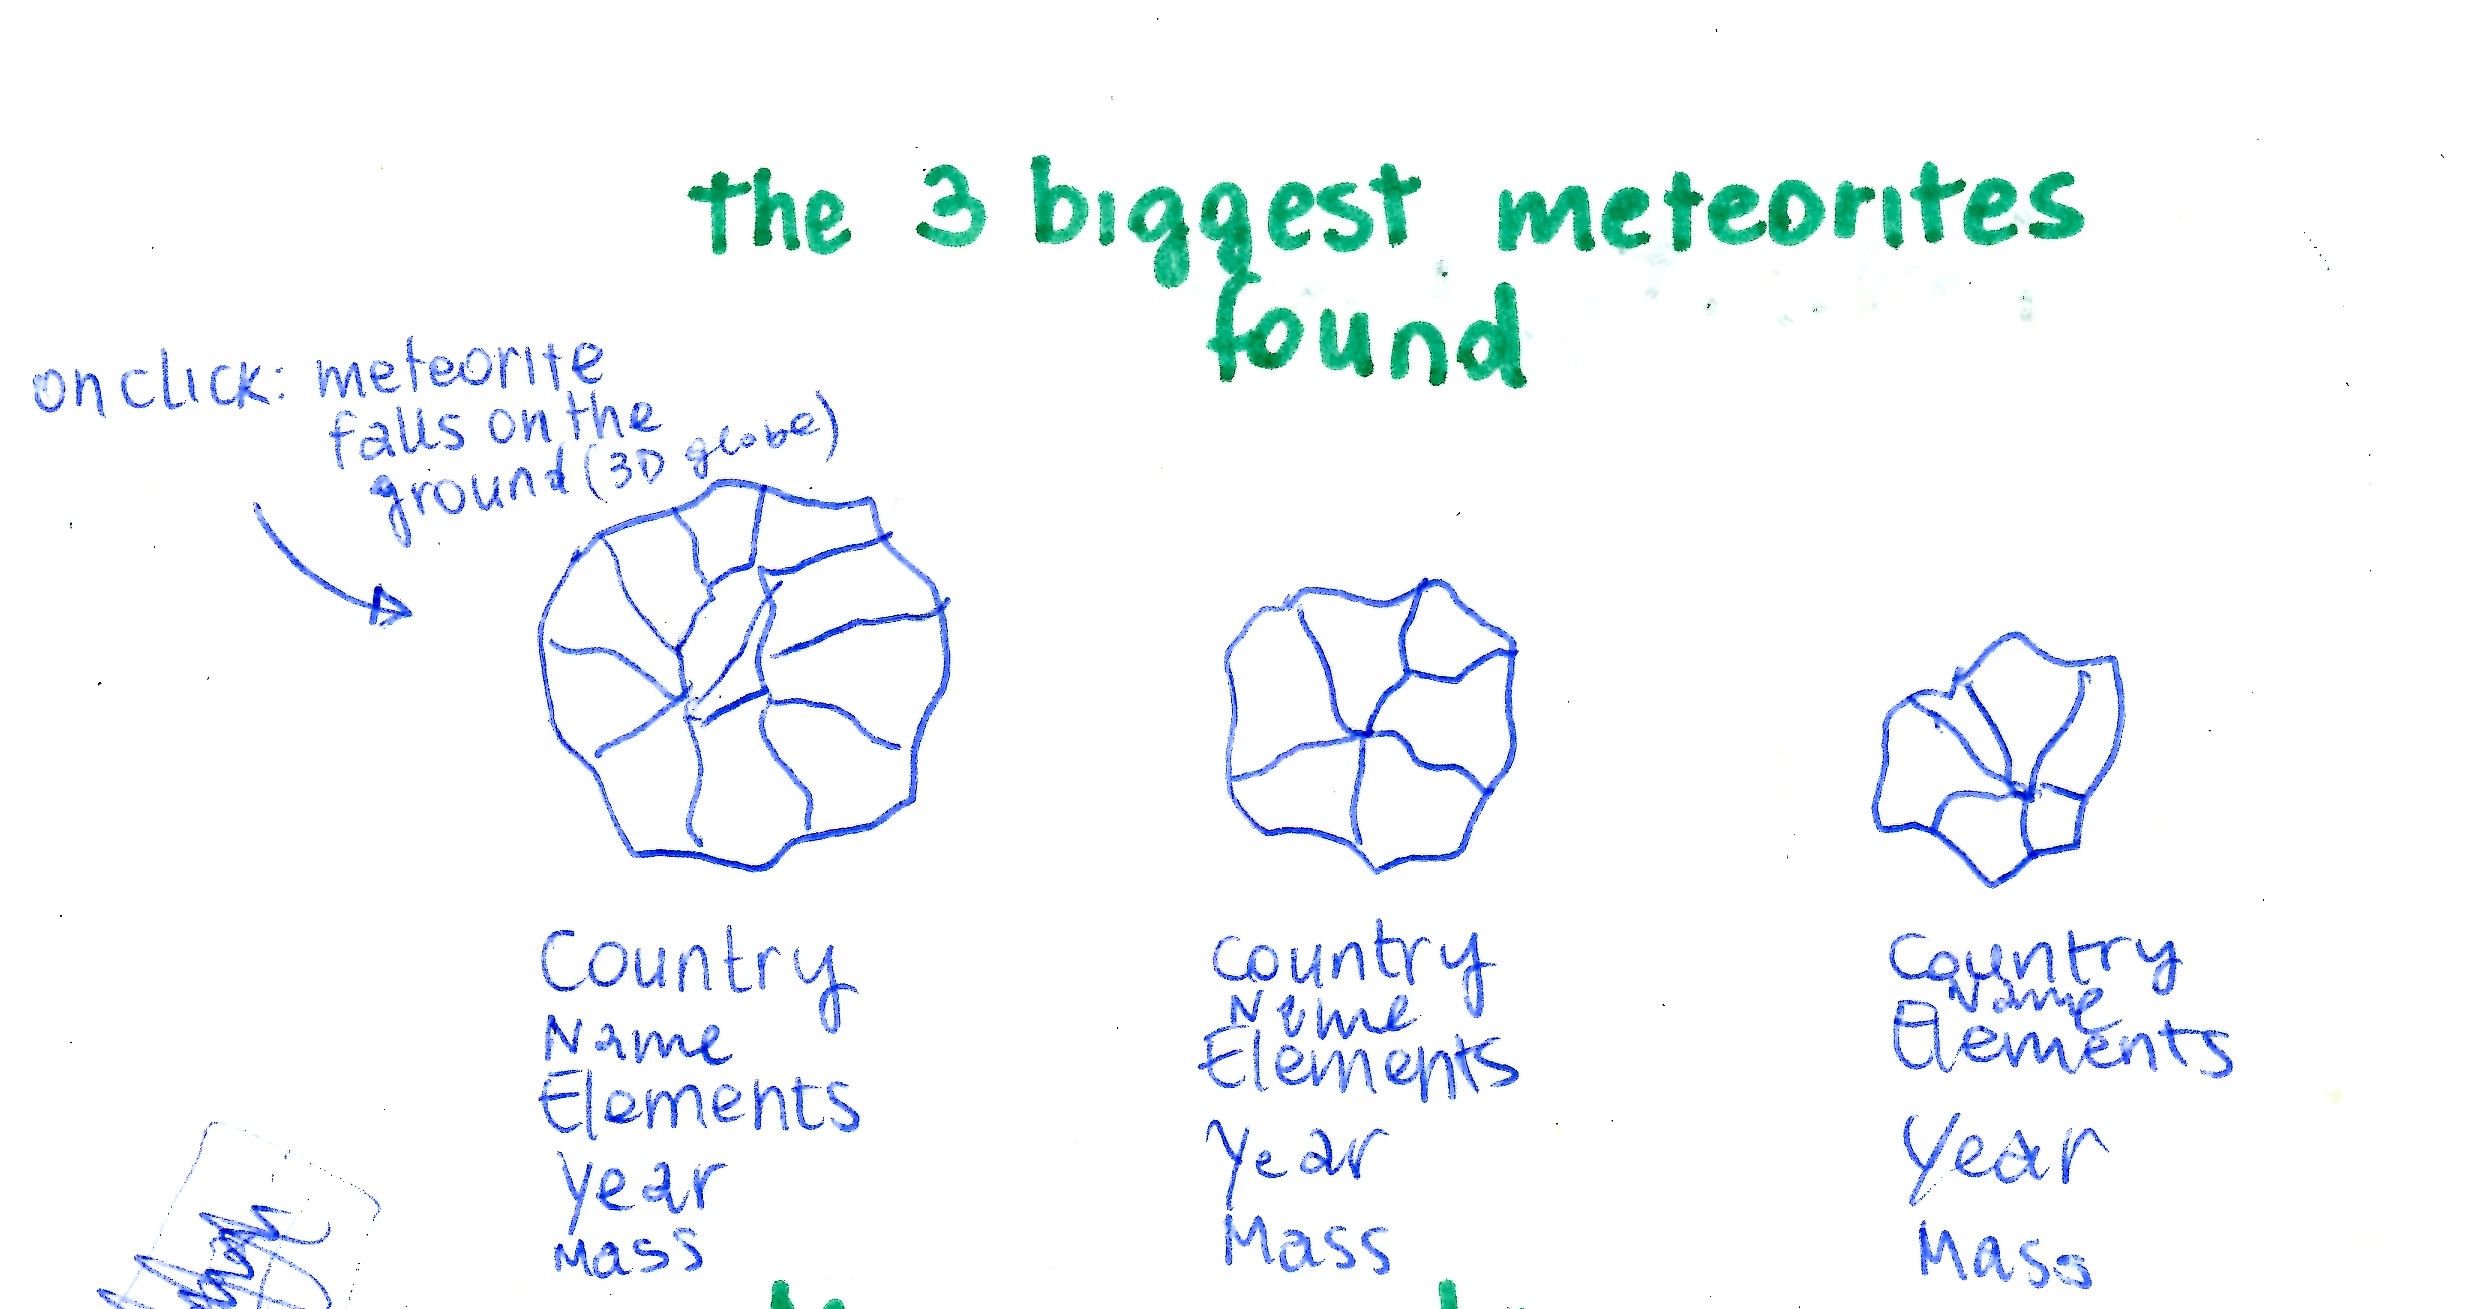 the 3 biggest meteorites
found
onclick: meteorite
falls on the
ground (3D globe)
Country
Name
Elements
Year
Mass
Country
Name
Elements
Year
Mass
Country
Name
Elements
Year
Mass